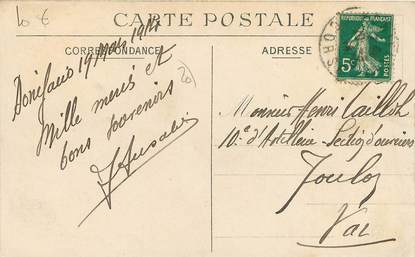 CARTE POSTALE
CORRESPONDANCE
ADRESSE
REPUBLIQUE FRANÇAISE
5c
POSTES
Bonifacio 19 Mars 1914
Mille mercis et
bons souvenirs
Monsieur Henri Caillol
10e d'Artillerie Section d'ouvriers
Toulon
Var